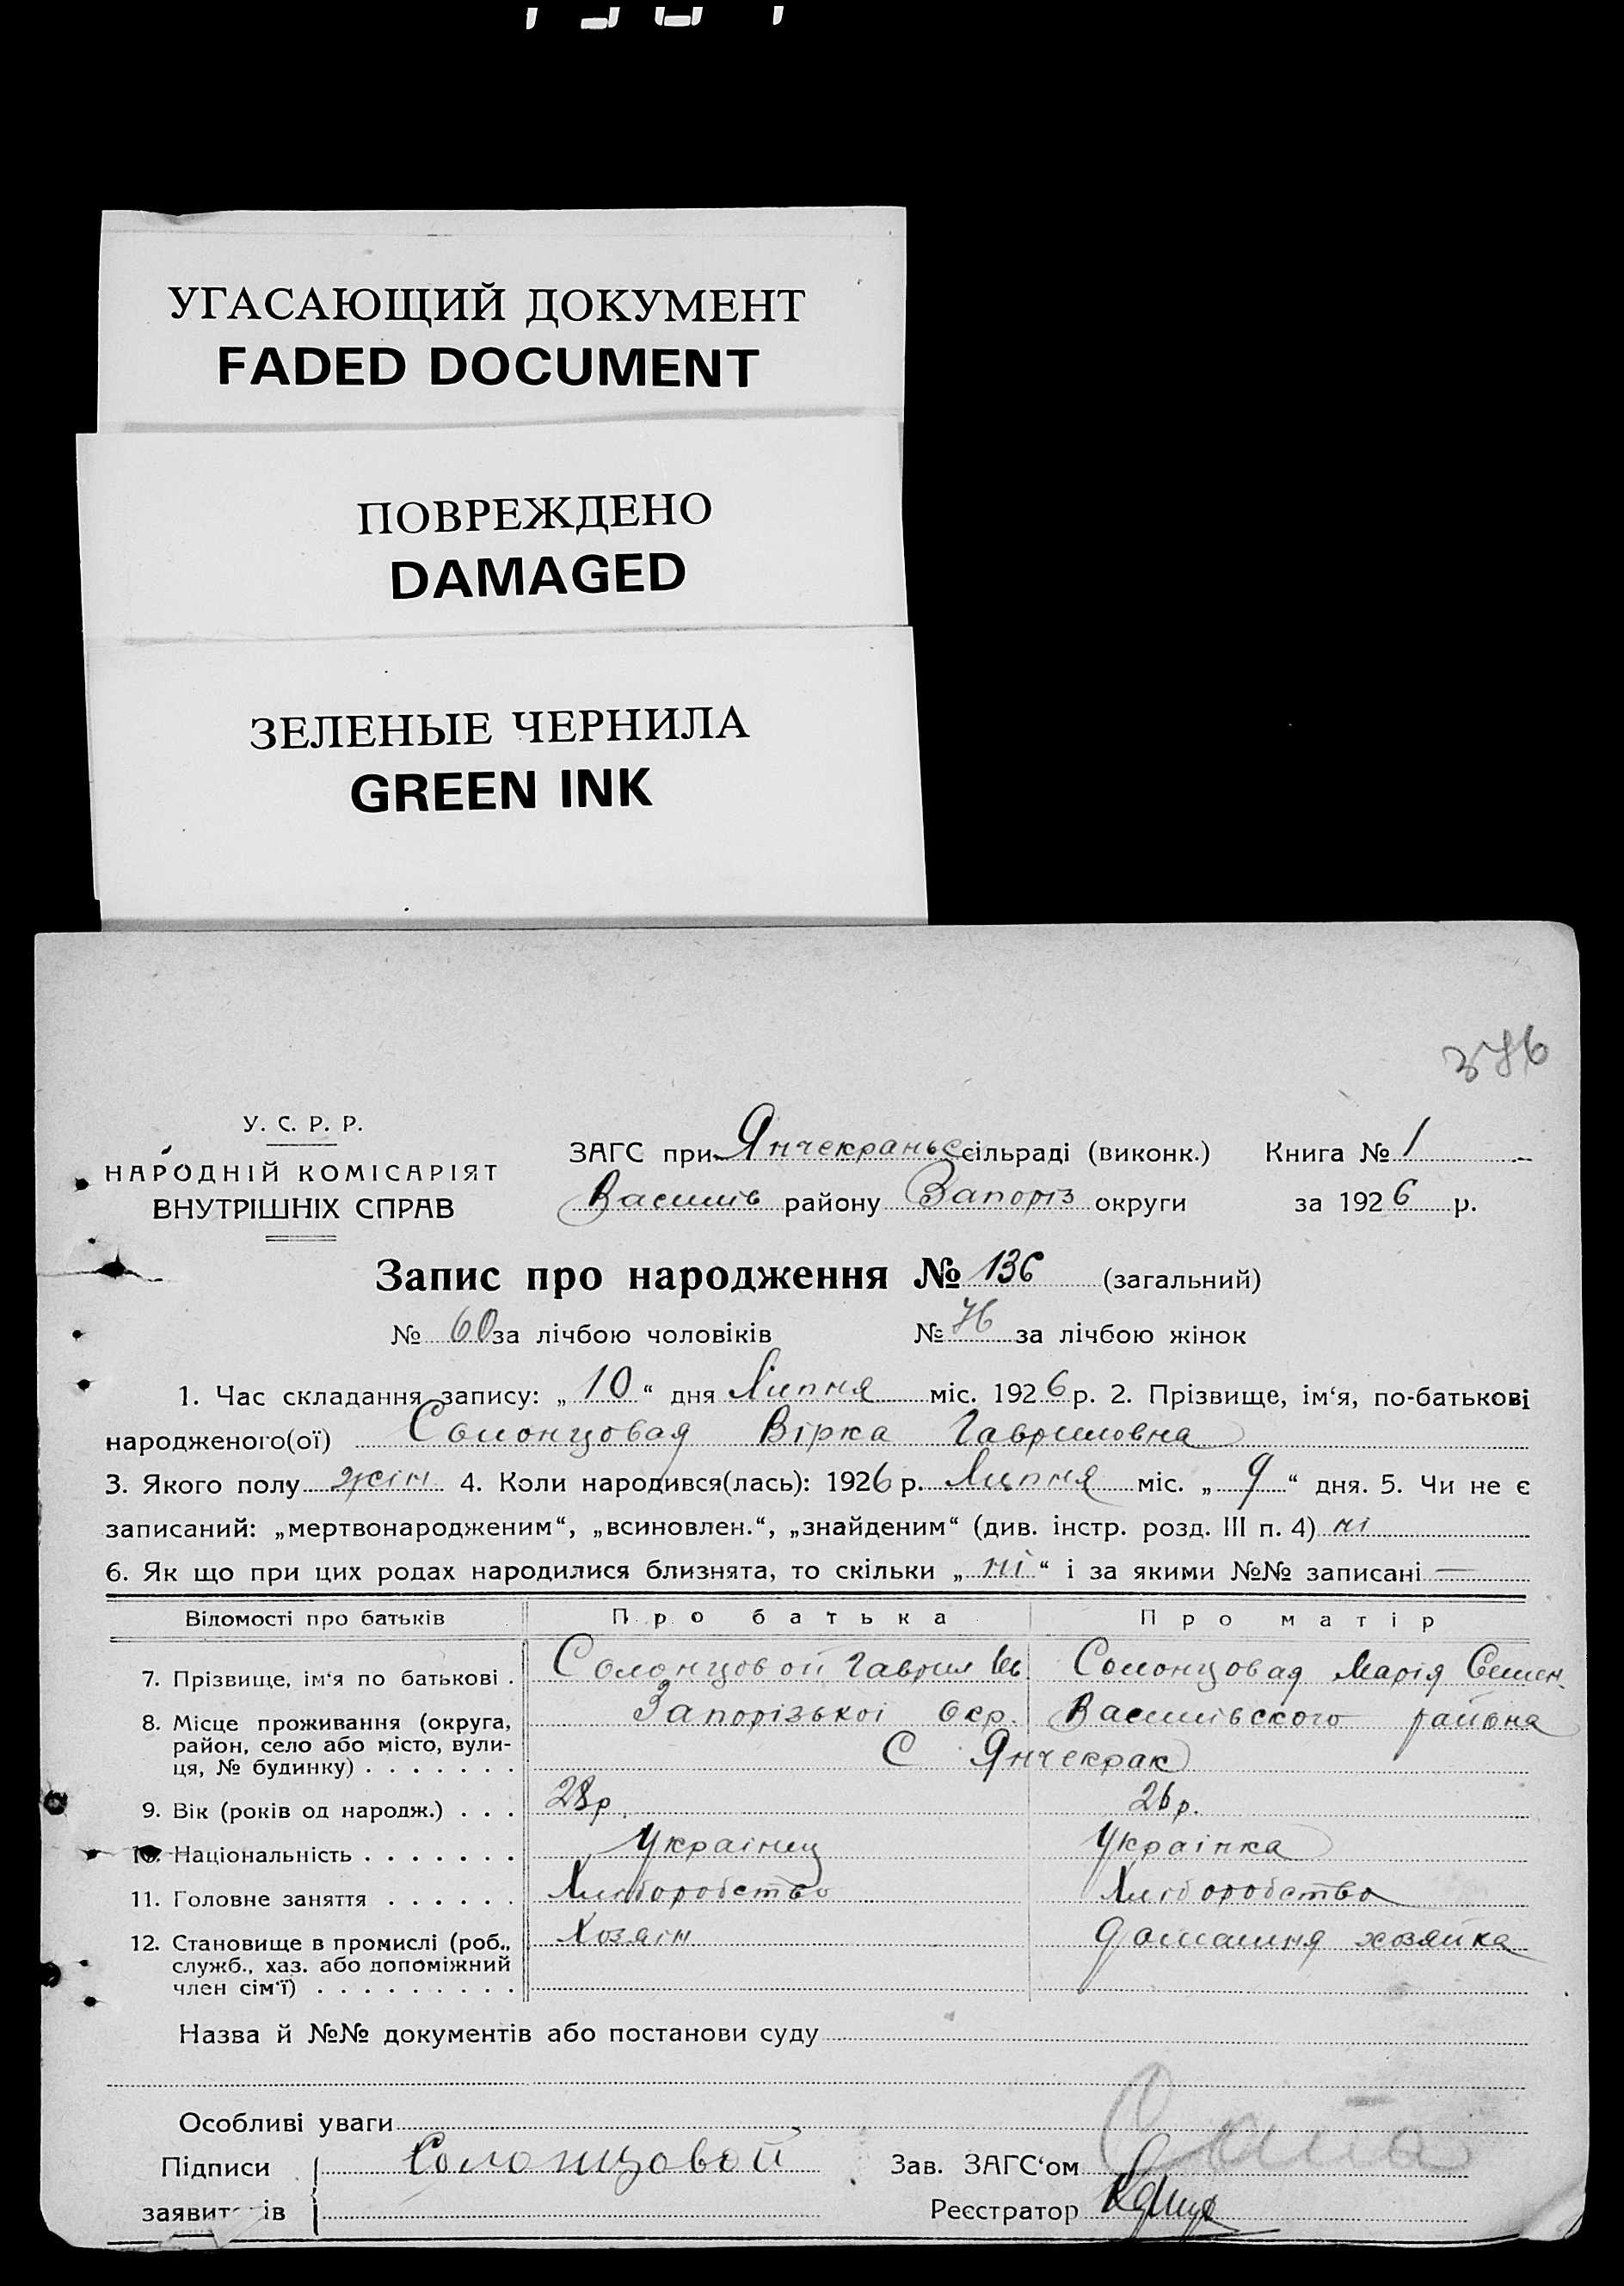 УГАСАЮЩИЙ ДОКУМЕНТ
FADED DOCUMENT
ПОВРЕЖДЕНО
DAMAGED
ЗЕЛЕНЫЕ ЧЕРНИЛА
GREEN INK
376
У. С. Р. Р.
НАРОДНІЙ КОМІСАРІЯТ
ВНУТРІШНІХ СПРАВ
ЗАГС при Янчекраньс сільраді (виконк.) Книга № 1
Василів району Запоріз округи за 1926 р.
Запис про народження № 136 (загальний)
№ 60 за лічбою чоловіків № 76 за лічбою жінок
1. Час складання запису: „10“ дня Липня міс. 1926 р. 2. Прізвище, ім‘я, по-батькові
народженого(ої) Солонцовая Вірка Гавриловна
3. Якого полу жін 4. Коли народився(лась): 1926 р. Липня міс. „9“ дня. 5. Чи не є
записаний: „мертвонародженим“, „всиновлен.“, „знайденим“ (див. інстр. розд. III п. 4) ні
6. Як що при цих родах народилися близнята, то скільки „ні“ і за якими №№ записані —
Відомості про батьків Про батька Про матір
7. Прізвище, ім‘я по батькові . Солонцовой Гаврил Ів. Солонцовая Марія Семен.
8. Місце проживання (округа, район, село або місто, вули-ця, № будинку) . . . . . . . Запорізькоі Окр. Василівского района
С Янчекрак
9. Вік (років од народж.) . . . 28 р. 26 р.
10. Національність . . . . . . . Украінец Украінка
11. Головне заняття . . . . . . Хліборобство Хліборобство
12. Становище в промислі (роб., служб., хаз. або допоміжний член сім‘ї) . . . . . . . . . Хозяін домашня хозяйка
Назва й №№ документів або постанови суду
Особливі уваги
Підписи Солонцовой Зав. ЗАГС‘ом
заявит ів Реєстратор